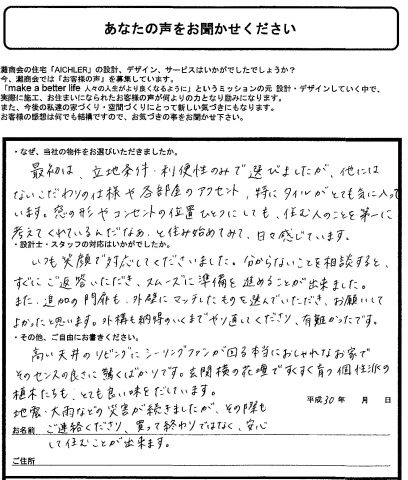 あなたの声をお聞かせください
灘商会の住宅「AICHLER」の設計、デザイン、サービスはいかがでしたでしょうか?
今、灘商会では「お客様の声」を募集しています。
「make a better life 人々の人生がより良くなるように」というミッションの元 設計・デザインしていく中で、
実際に施工、お住まいになられたお客様の声が何よりの力となり励みになります。
また、今後の私達の家づくり・空間づくりにとって新しい気づきにもなります。
お客様の感想は何でも結構ですので、お気づきの事をお聞かせ下さい。
・なぜ、当社の物件をお選びいただきましたか。
最初は、立地条件・利便性のみで選びましたが、他には
ないこだわりの仕様や各部屋のアクセント、特にタイルがとても気に入って
います。窓の形やコンセントの位置ひとつにしても、住む人のことを第一に
考えてくれているんだなあ、と住み始めてみて、日々感じています。
・設計士・スタッフの対応はいかがでしたか。
いつも笑顔で対応してくださいました。分からないことを相談すると、
すぐにご返答いただき、スムーズに準備を進めることが出来ました。
また、追加の門扉も、外壁にマッチしたものを選んでいただき、お願いして
よかったと思います。外構も納得のいくまでやり直してくださり、有難かったです。
・その他、ご自由にお書きください。
高い天井のリビングにシーリングファンが回る本当におしゃれなお家で
そのセンスの良さに驚くばかりです。玄関横の花壇ですくすく育つ個性派の
植木たちも、とても良い味をだしています。
平成30年 月 日
地震・大雨などの災害が続きましたが、その際も
お名前 ご連絡くださり、買って終わりではなく、安心
して住むことが出来ます。
ご住所